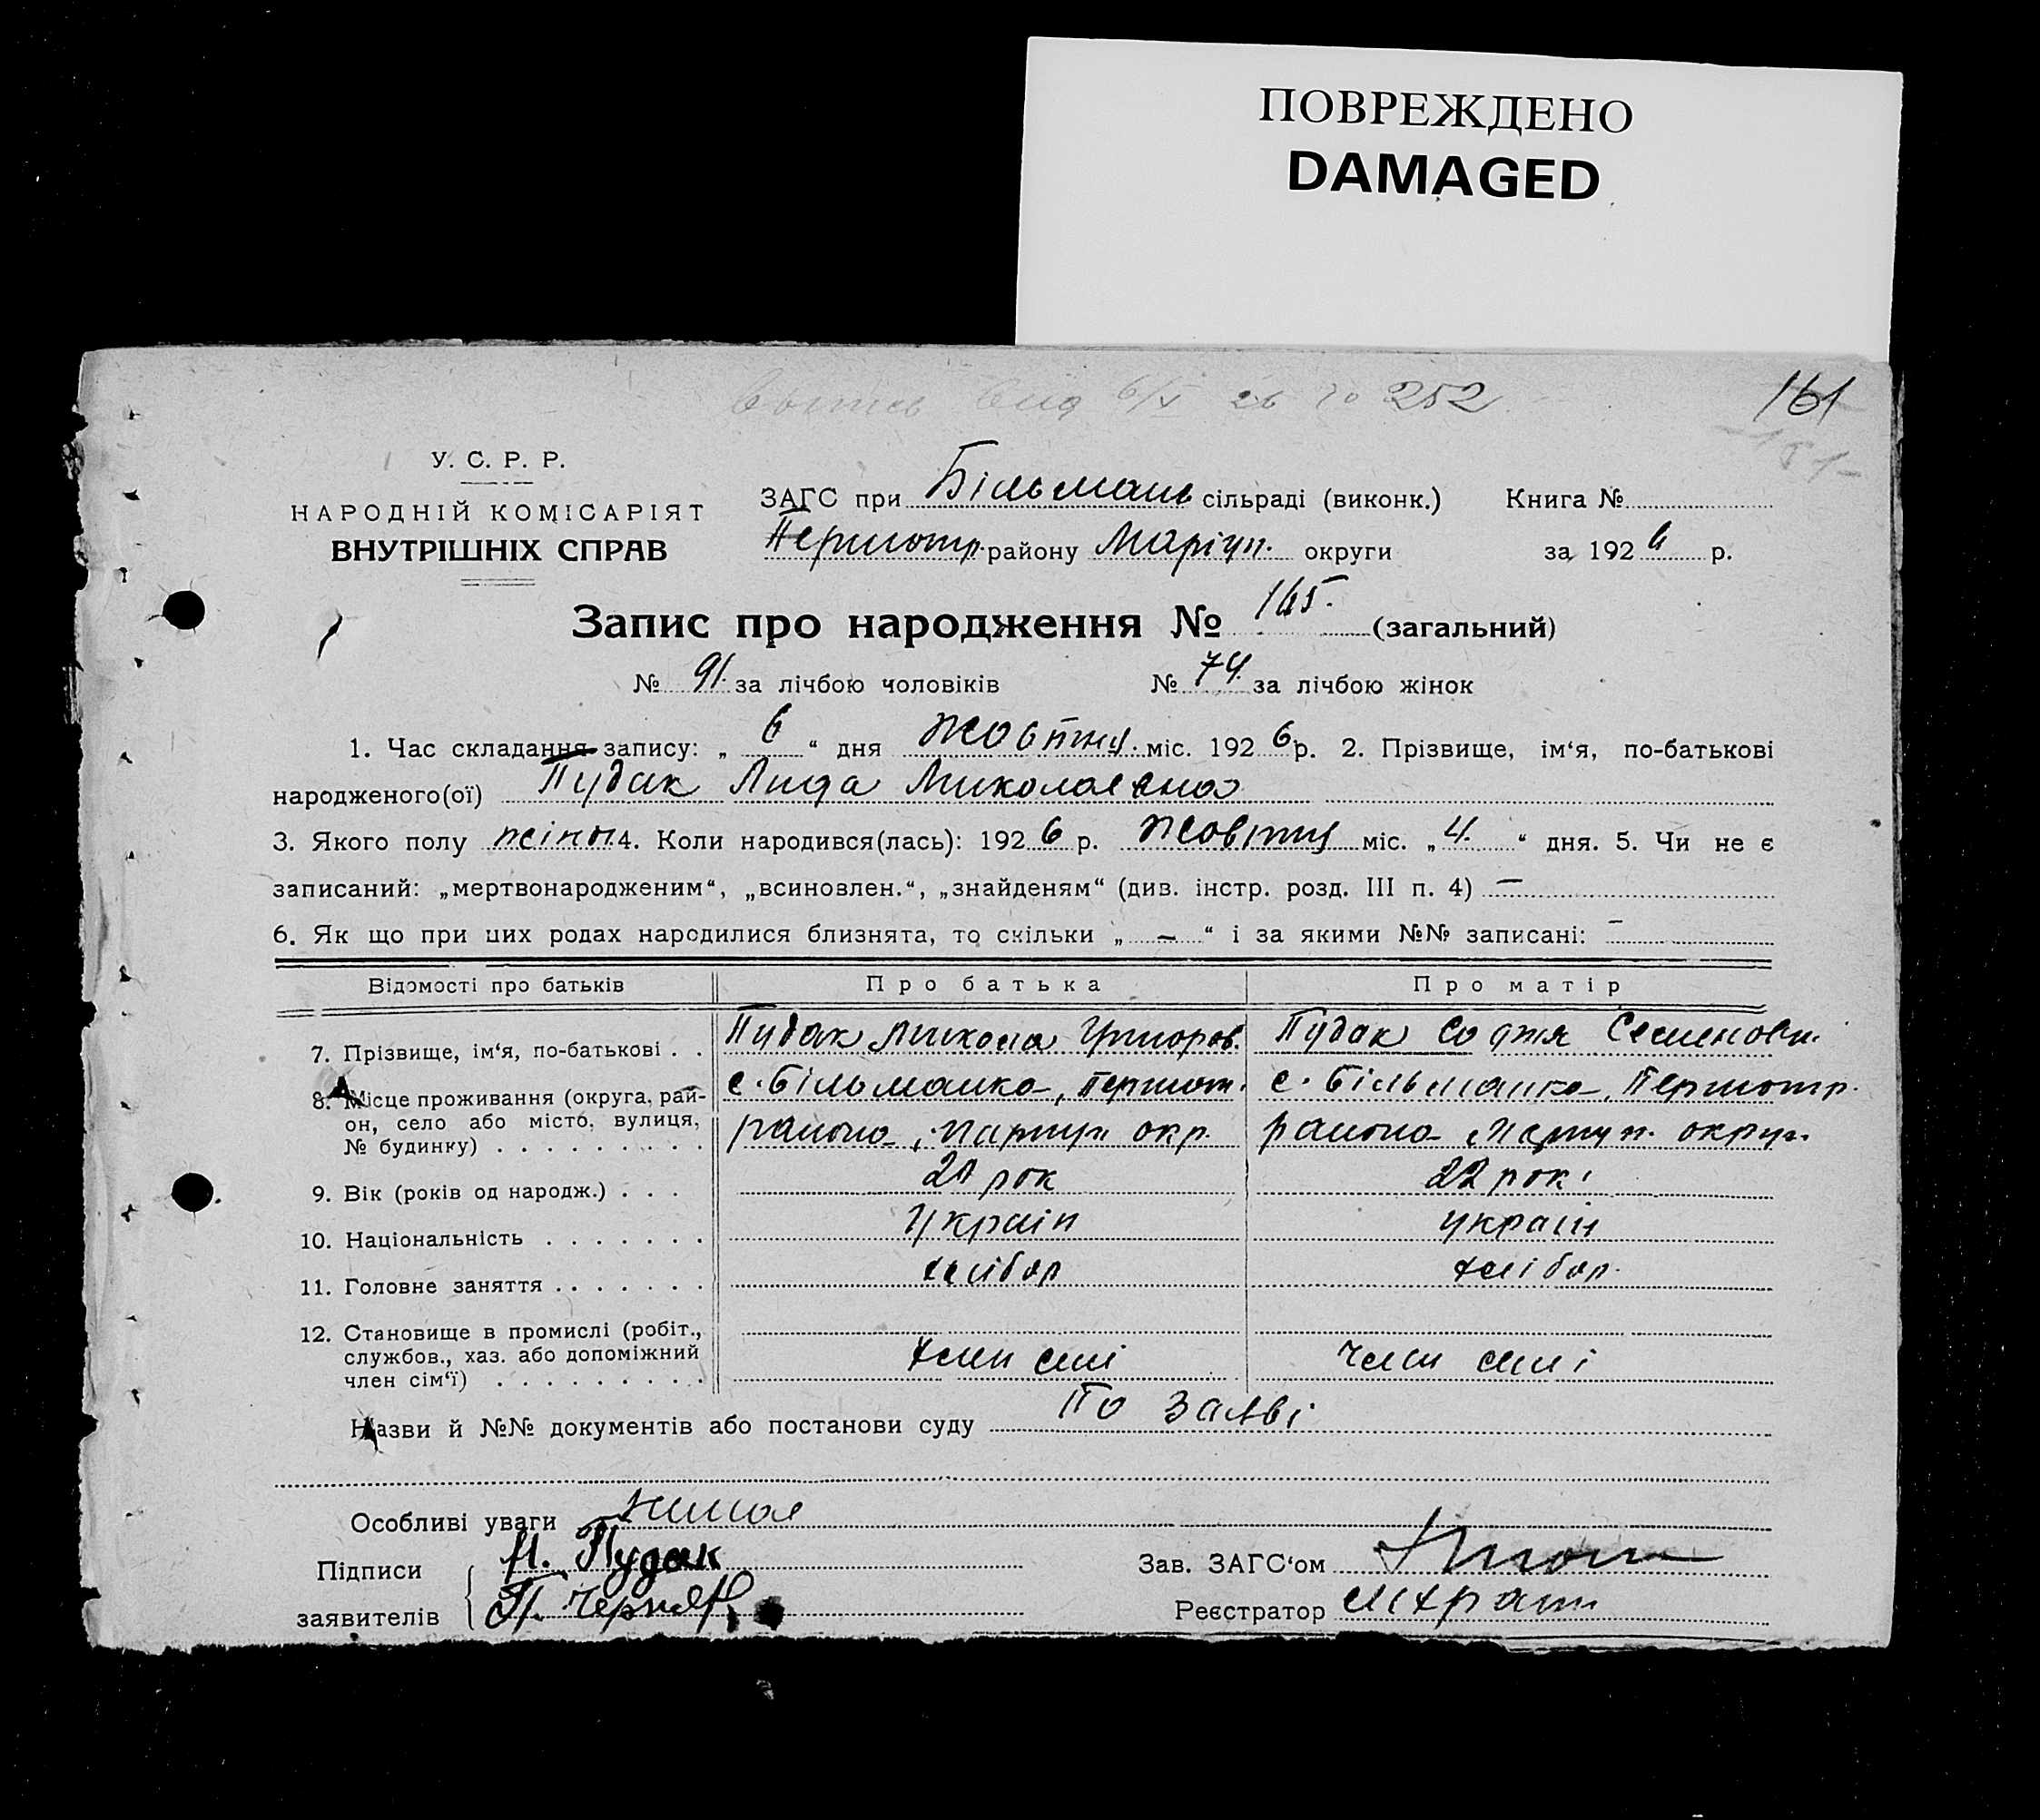 ПОВРЕЖДЕНО
DAMAGED
6/X 26 252
161
У. С. Р. Р.
НАРОДНІЙ КОМІСАРІЯТ
ВНУТРІШНІХ СПРАВ
ЗАГС при Більмань сільраді (виконк.) Книга №
Першотр. району Маріуп. округи за 1926 р.
Запис про народження № 165. (загальний)
№ 91. за лічбою чоловіків № 74. за лічбою жінок
1. Час складання запису: „ 6 “ дня жовтня. міс. 1926 р. 2. Прізвище, ім‘я, по-батькові
народженого(ої) Пудак Лида Миколаевна
3. Якого полу жіноч. 4. Коли народився(лась): 1926 р. жовтня міс. „ 4. “ дня. 5. Чи не є
записаний: „мертвонародженим“, „всиновлен.“, „знайденям“ (див. інстр. розд. III п. 4) —
6. Як що при цих родах народилися близнята, то скільки „ — “ і за якими №№ записані: —
Відомості про батьків Про батька Про матір
7. Прізвище, ім‘я, по-батькові . . Пудак Микола Григоров. Пудак Софія Семеновн.
8. Місце проживання (округа, рай-
он, село або місто, вулиця,
№ будинку) . . . . . . . . . с. Більманка, Першот. района, Маріуп окр. с. Більманка, Першотр. района Маріуп. округ.
9. Вік (років од народж.) . . . 21 рок 22 рокі
10. Національність . . . . . . . Україн україн
11. Головне заняття . . . . . . . хлібор хлібор.
12. Становище в промислі (робіт.,
службов., хаз. або допоміжний
член сім‘ї) . . . . . . . . . член симі член симі
Назви й №№ документів або постанови суду По заяві
Особливі уваги
Підписи Н. Пудак Зав. ЗАГС‘ом
заявителів П. Реєстратор